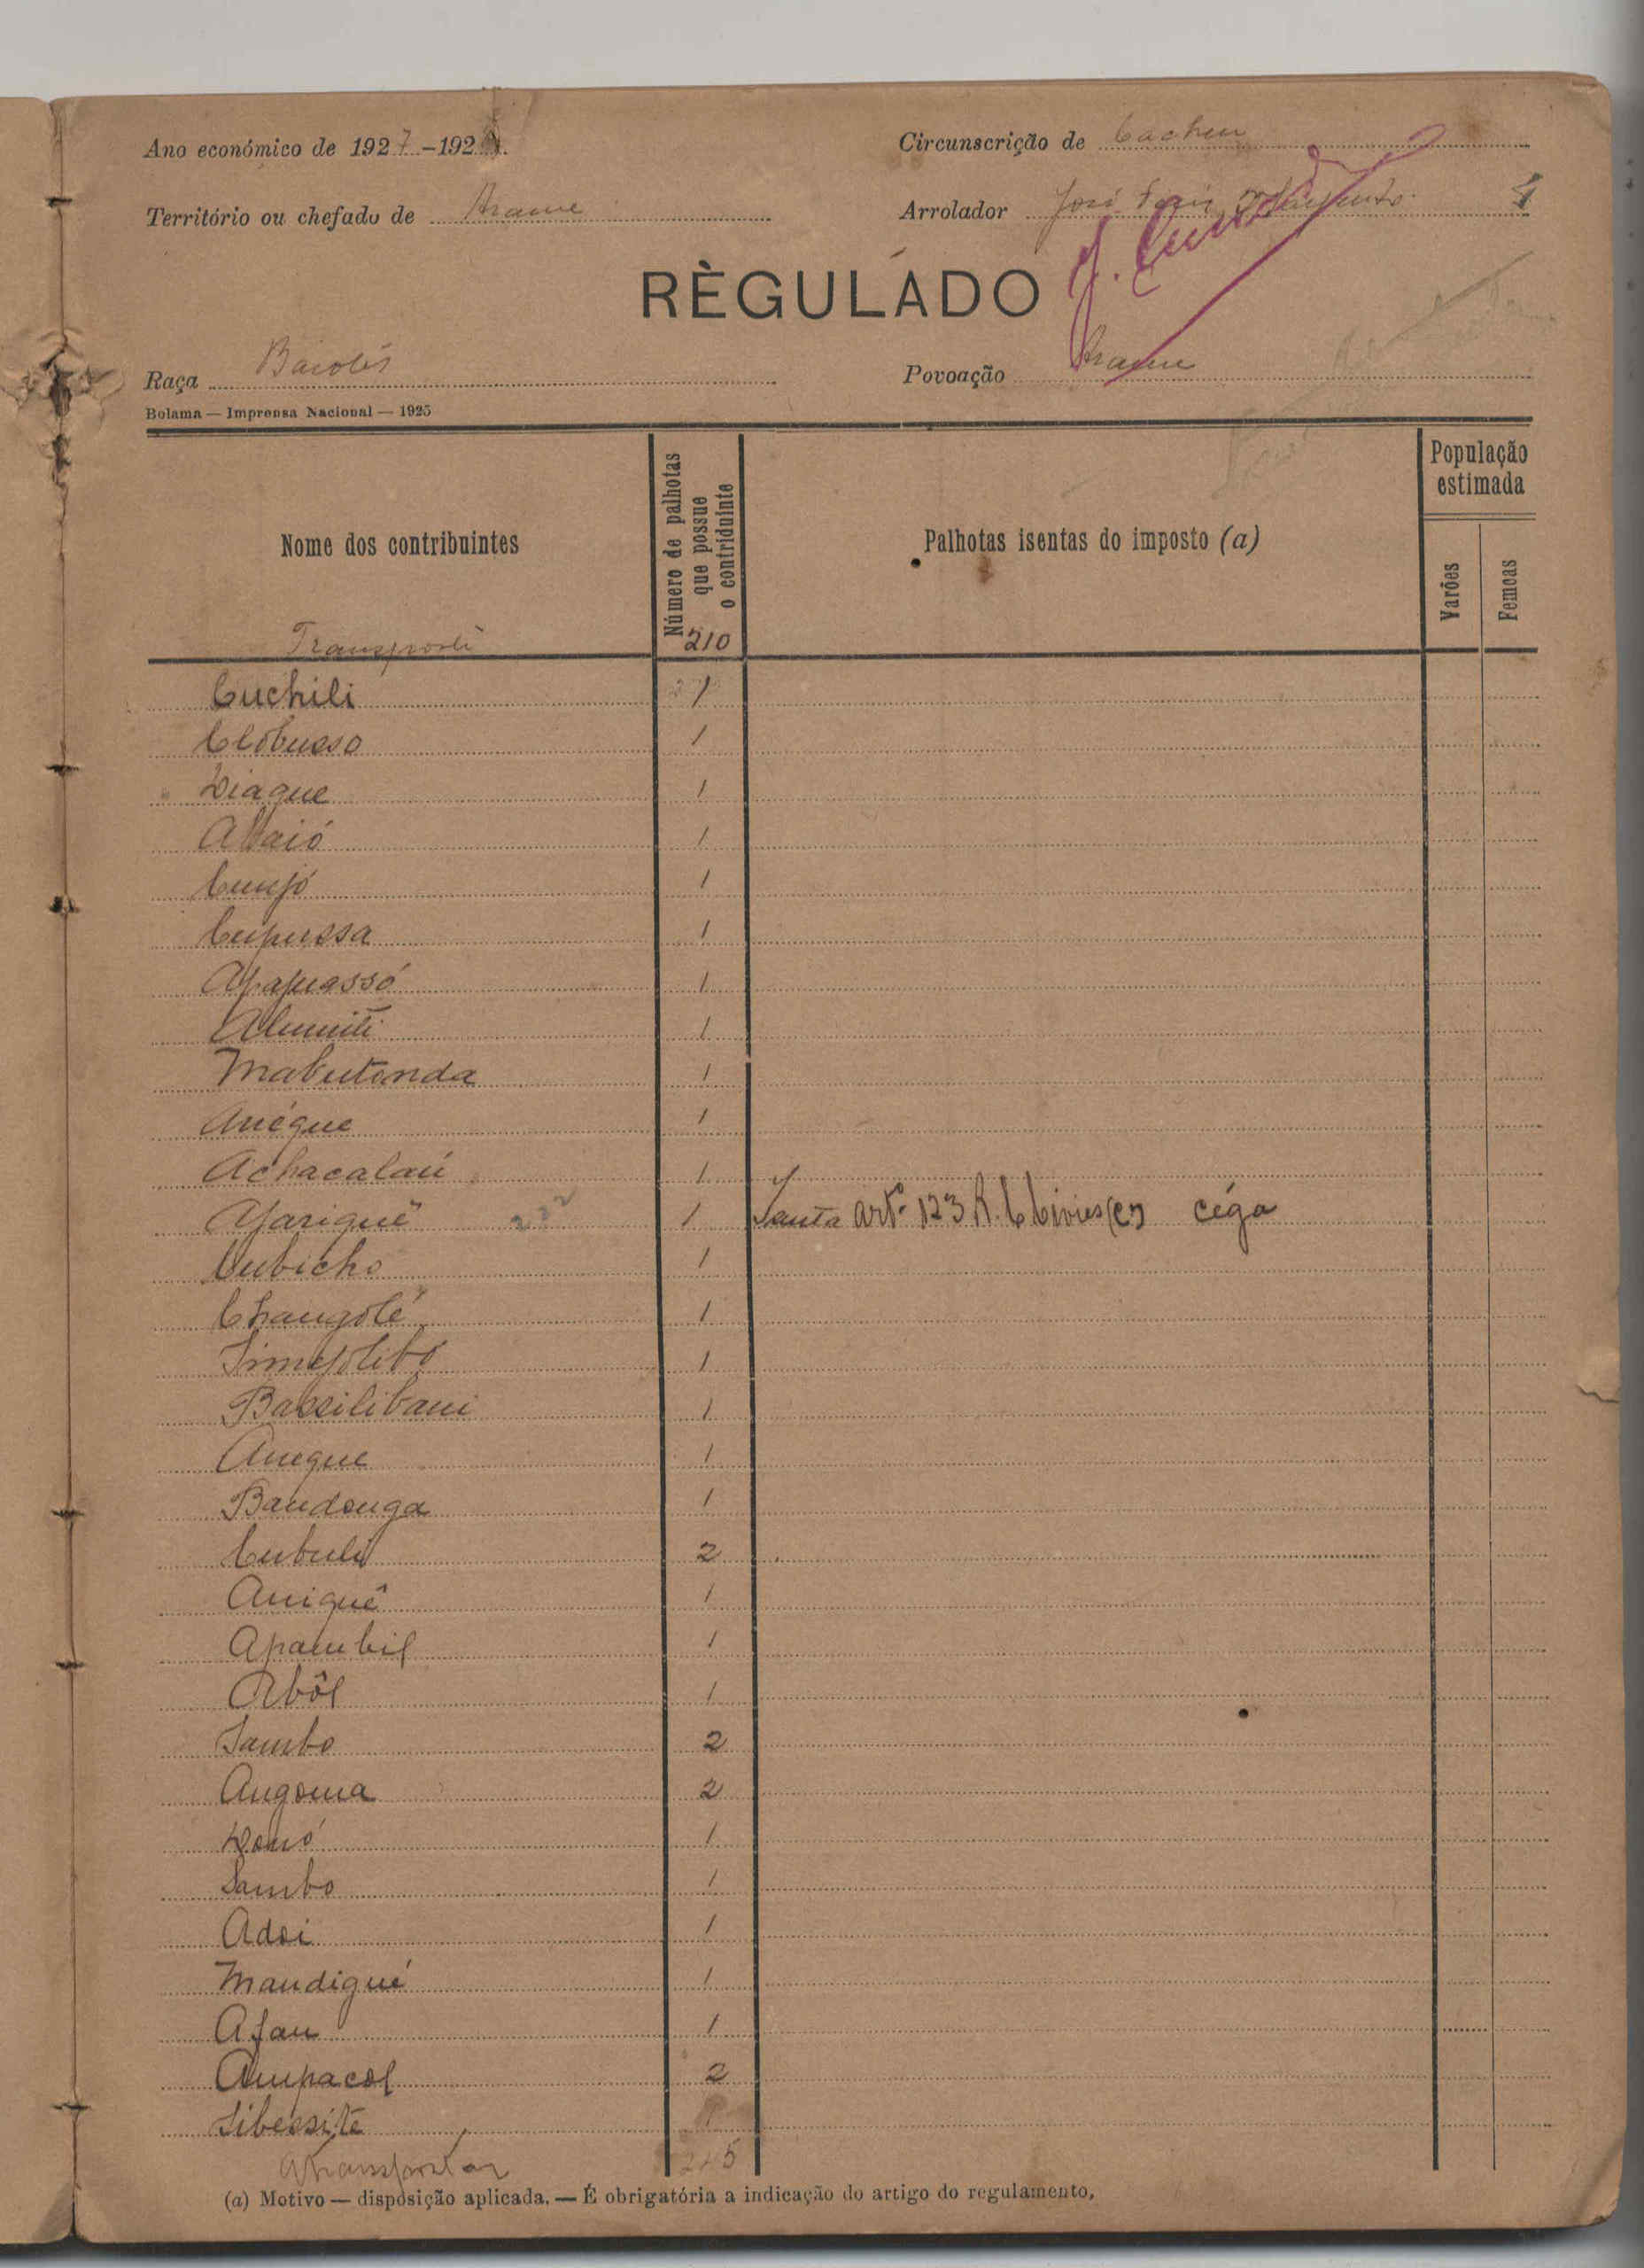 Ano económico de 1927-192
Circunscrição de Cacheu
Território ou chefado de Arame
Arrolador José
RÈGULADO
Raça Baiotes
Povoação Arame
Bolama — Imprensa Nacional — 1925
Nome dos contribuintes
Número de palhotas
que possue
o contriduinte
Palhotas isentas do imposto (a)
População
estimada
Varões
Femeas
Transporte 210
Cuchili 1
Clobusso 1
Diaque 1
Abaió 1
Cunjó 1
Cupussa 1
Apapuassó 1
1
Mabutonda 1
Anéque 1
Achacalaú 1
Afariguê 1 artº 123 R. C céga
Cubicho 1
Changolé 1
1
Bassilibani 1
Aneque 1
Bandonga 1
Cubuli 2
Aniquê 1
Apambil 1
Abôl 1
Sambo 2
Angoma 2
1
Sambo 1
Adoi 1
Mandigué 1
Afan 1
Ampacol 2
Sibessite 1
A transportar 245
(a) Motivo — disposição aplicada. — É obrigatória a indicação do artigo do regulamento.